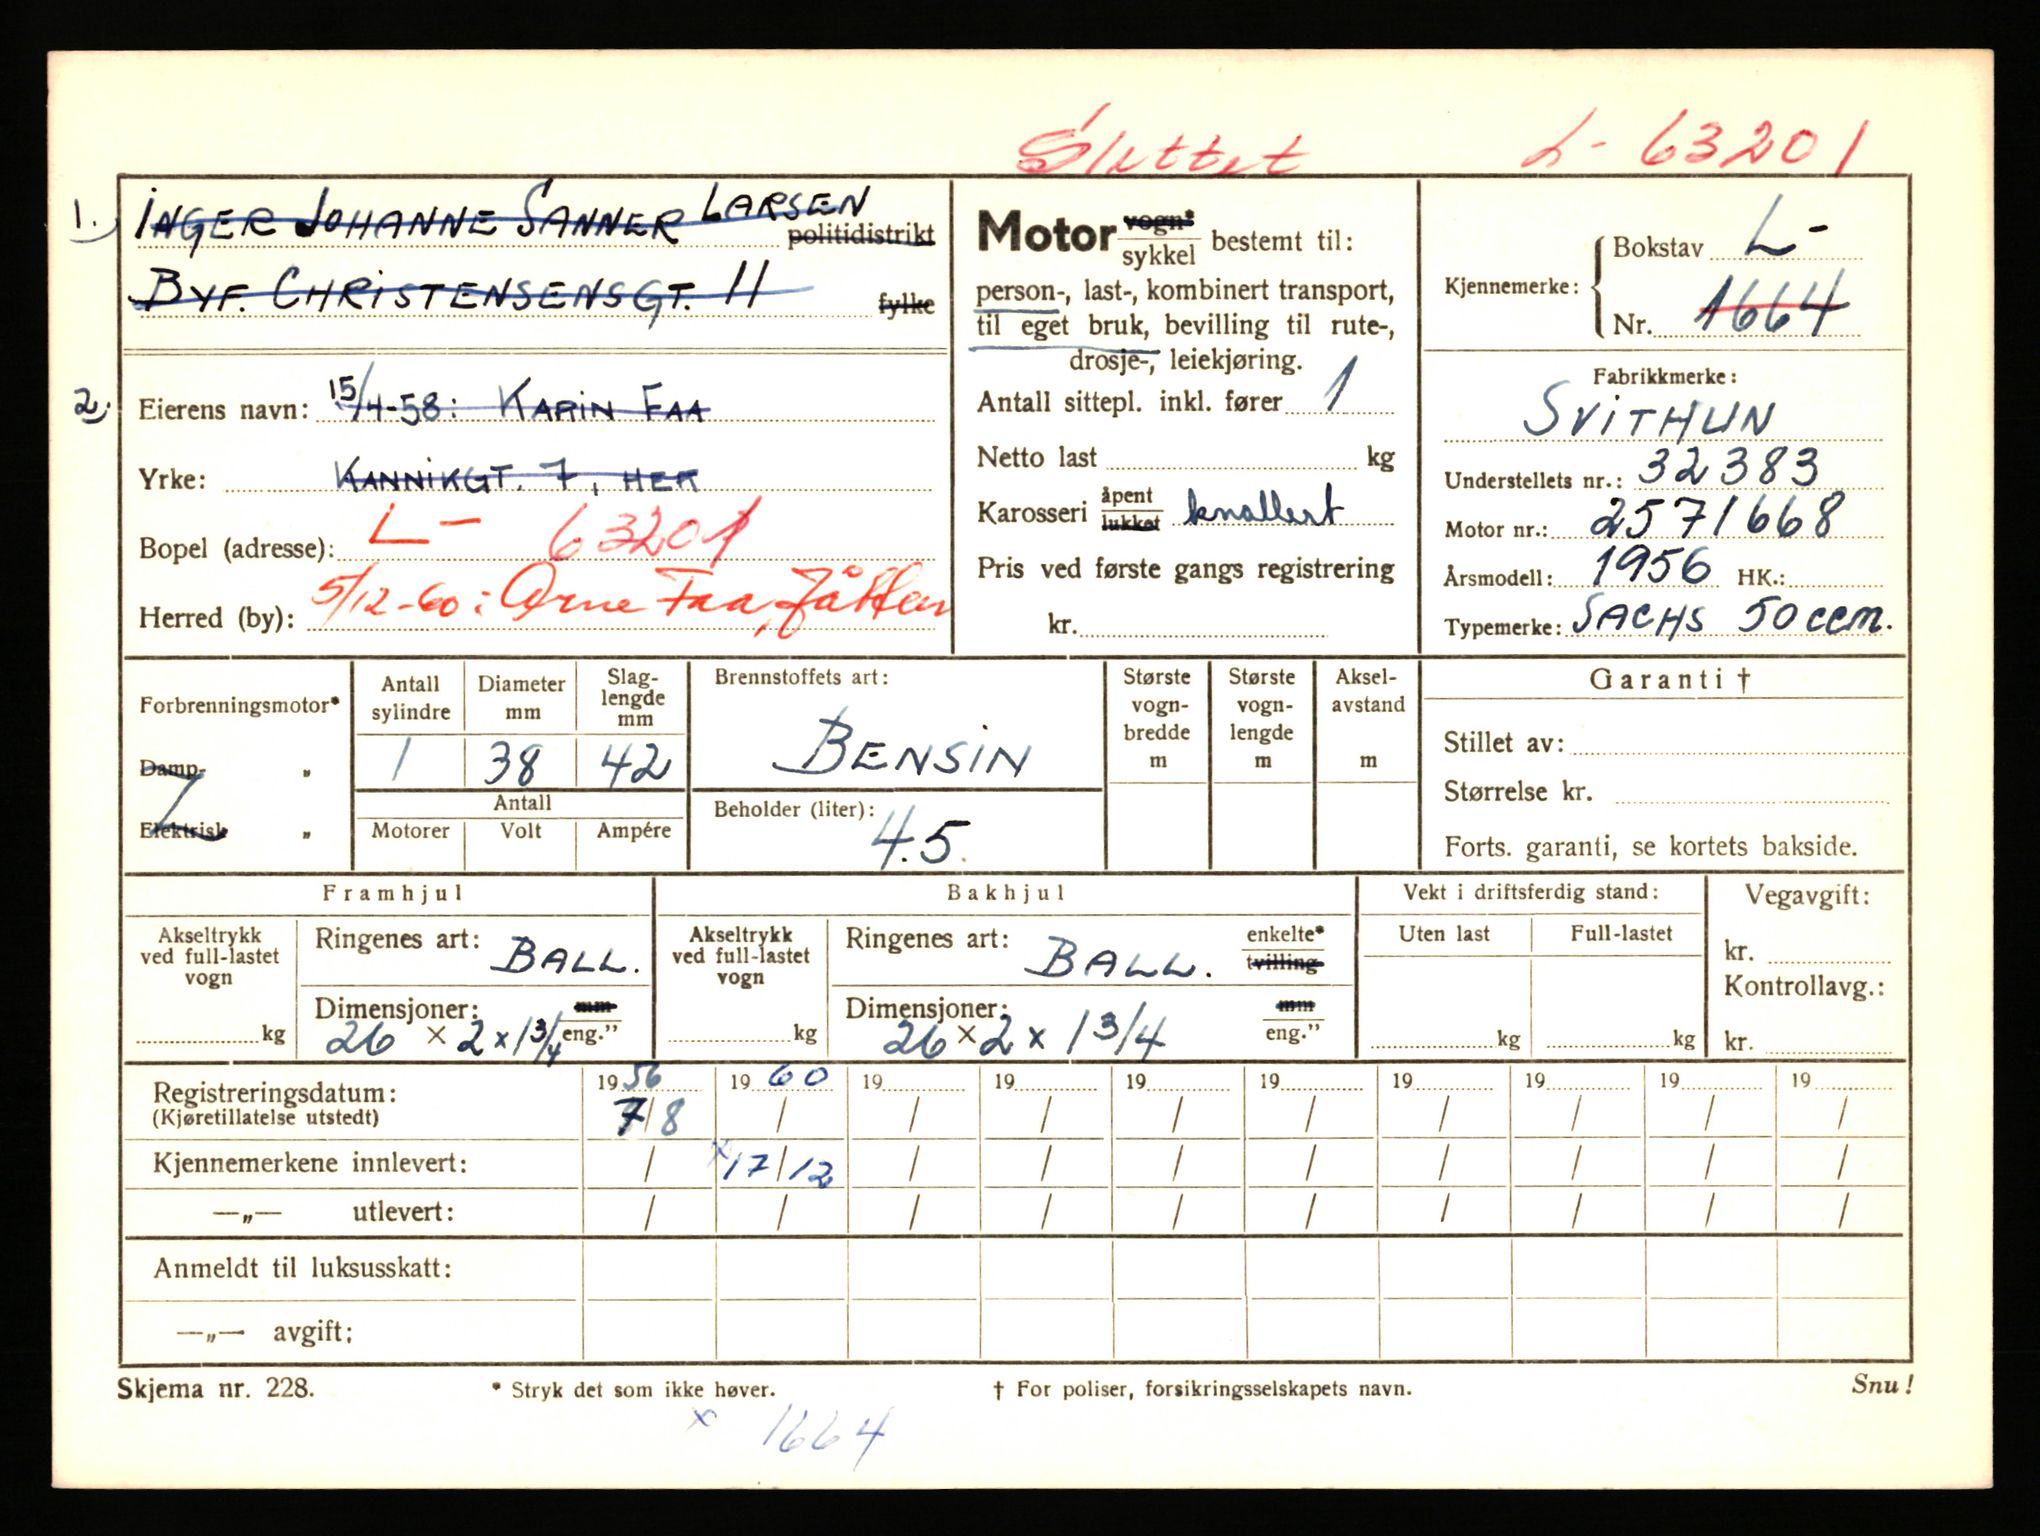 Slettet L- 63201
1. INGER JOHANNE SANNER LARSEN politidistrikt
BYF. CHRISTENSENSGT. 11 fylke
2. Eierens navn: 15/4-58: KARIN FAA
Yrke: KANNIKGT. 7, HER
Bopel (adresse): L- 63201
Herred (by): 5/12-60: Arne Faa, Jåtten
Motor vogn* sykkel bestemt til:
person-, last-, kombinert transport,
til eget bruk, bevilling til rute-,
drosje-, leiekjøring.
Antall sittepl. inkl. fører 1
Netto last kg
Karosseri åpent lukket knallert
Pris ved første gangs registrering
kr.
Kjennemerke: Bokstav L-
Nr. 1664
Fabrikkmerke:
SVITHUN
Understellets nr.: 32383
Motor nr.: 2571668
Årsmodell: 1956 HK.:
Typemerke: SACHS 50 ccm.
Forbrenningsmotor*
Damp- „
Elektrisk „
Antall sylindre Diameter mm Slag-lengde mm
1 38 42
Antall
Motorer Volt Ampére
Brennstoffets art:
BENSIN
Beholder (liter):
4.5
Største vogn-bredde m
Største vogn-lengde m
Aksel-avstand m
Garanti †
Stillet av:
Størrelse kr.
Forts. garanti, se kortets bakside.
Framhjul
Akseltrykk ved full-lastet vogn
kg
Ringenes art: BALL.
Dimensjoner: mm eng."
26 x 2 x 1 3/4
Bakhjul
Akseltrykk ved full-lastet vogn
kg
Ringenes art: BALL. enkelte* tvilling
Dimensjoner: mm eng."
26 x 2 x 1 3/4
Vekt i driftsferdig stand:
Uten last Full-lastet
kg kg
Vegavgift:
kr.
Kontrollavg.:
kr.
Registreringsdatum: 1956 1960 19 19 19 19 19 19 19 19
(Kjøretillatelse utstedt) 7/8 / / / / / / / / /
Kjennemerkene innlevert: / x 17/12 / / / / / / / /
—„— utlevert: / / / / / / / / / /
Anmeldt til luksusskatt:
—„— avgift:
Skjema nr. 228. * Stryk det som ikke høver. † For poliser, forsikringsselskapets navn. Snu!
x 1664